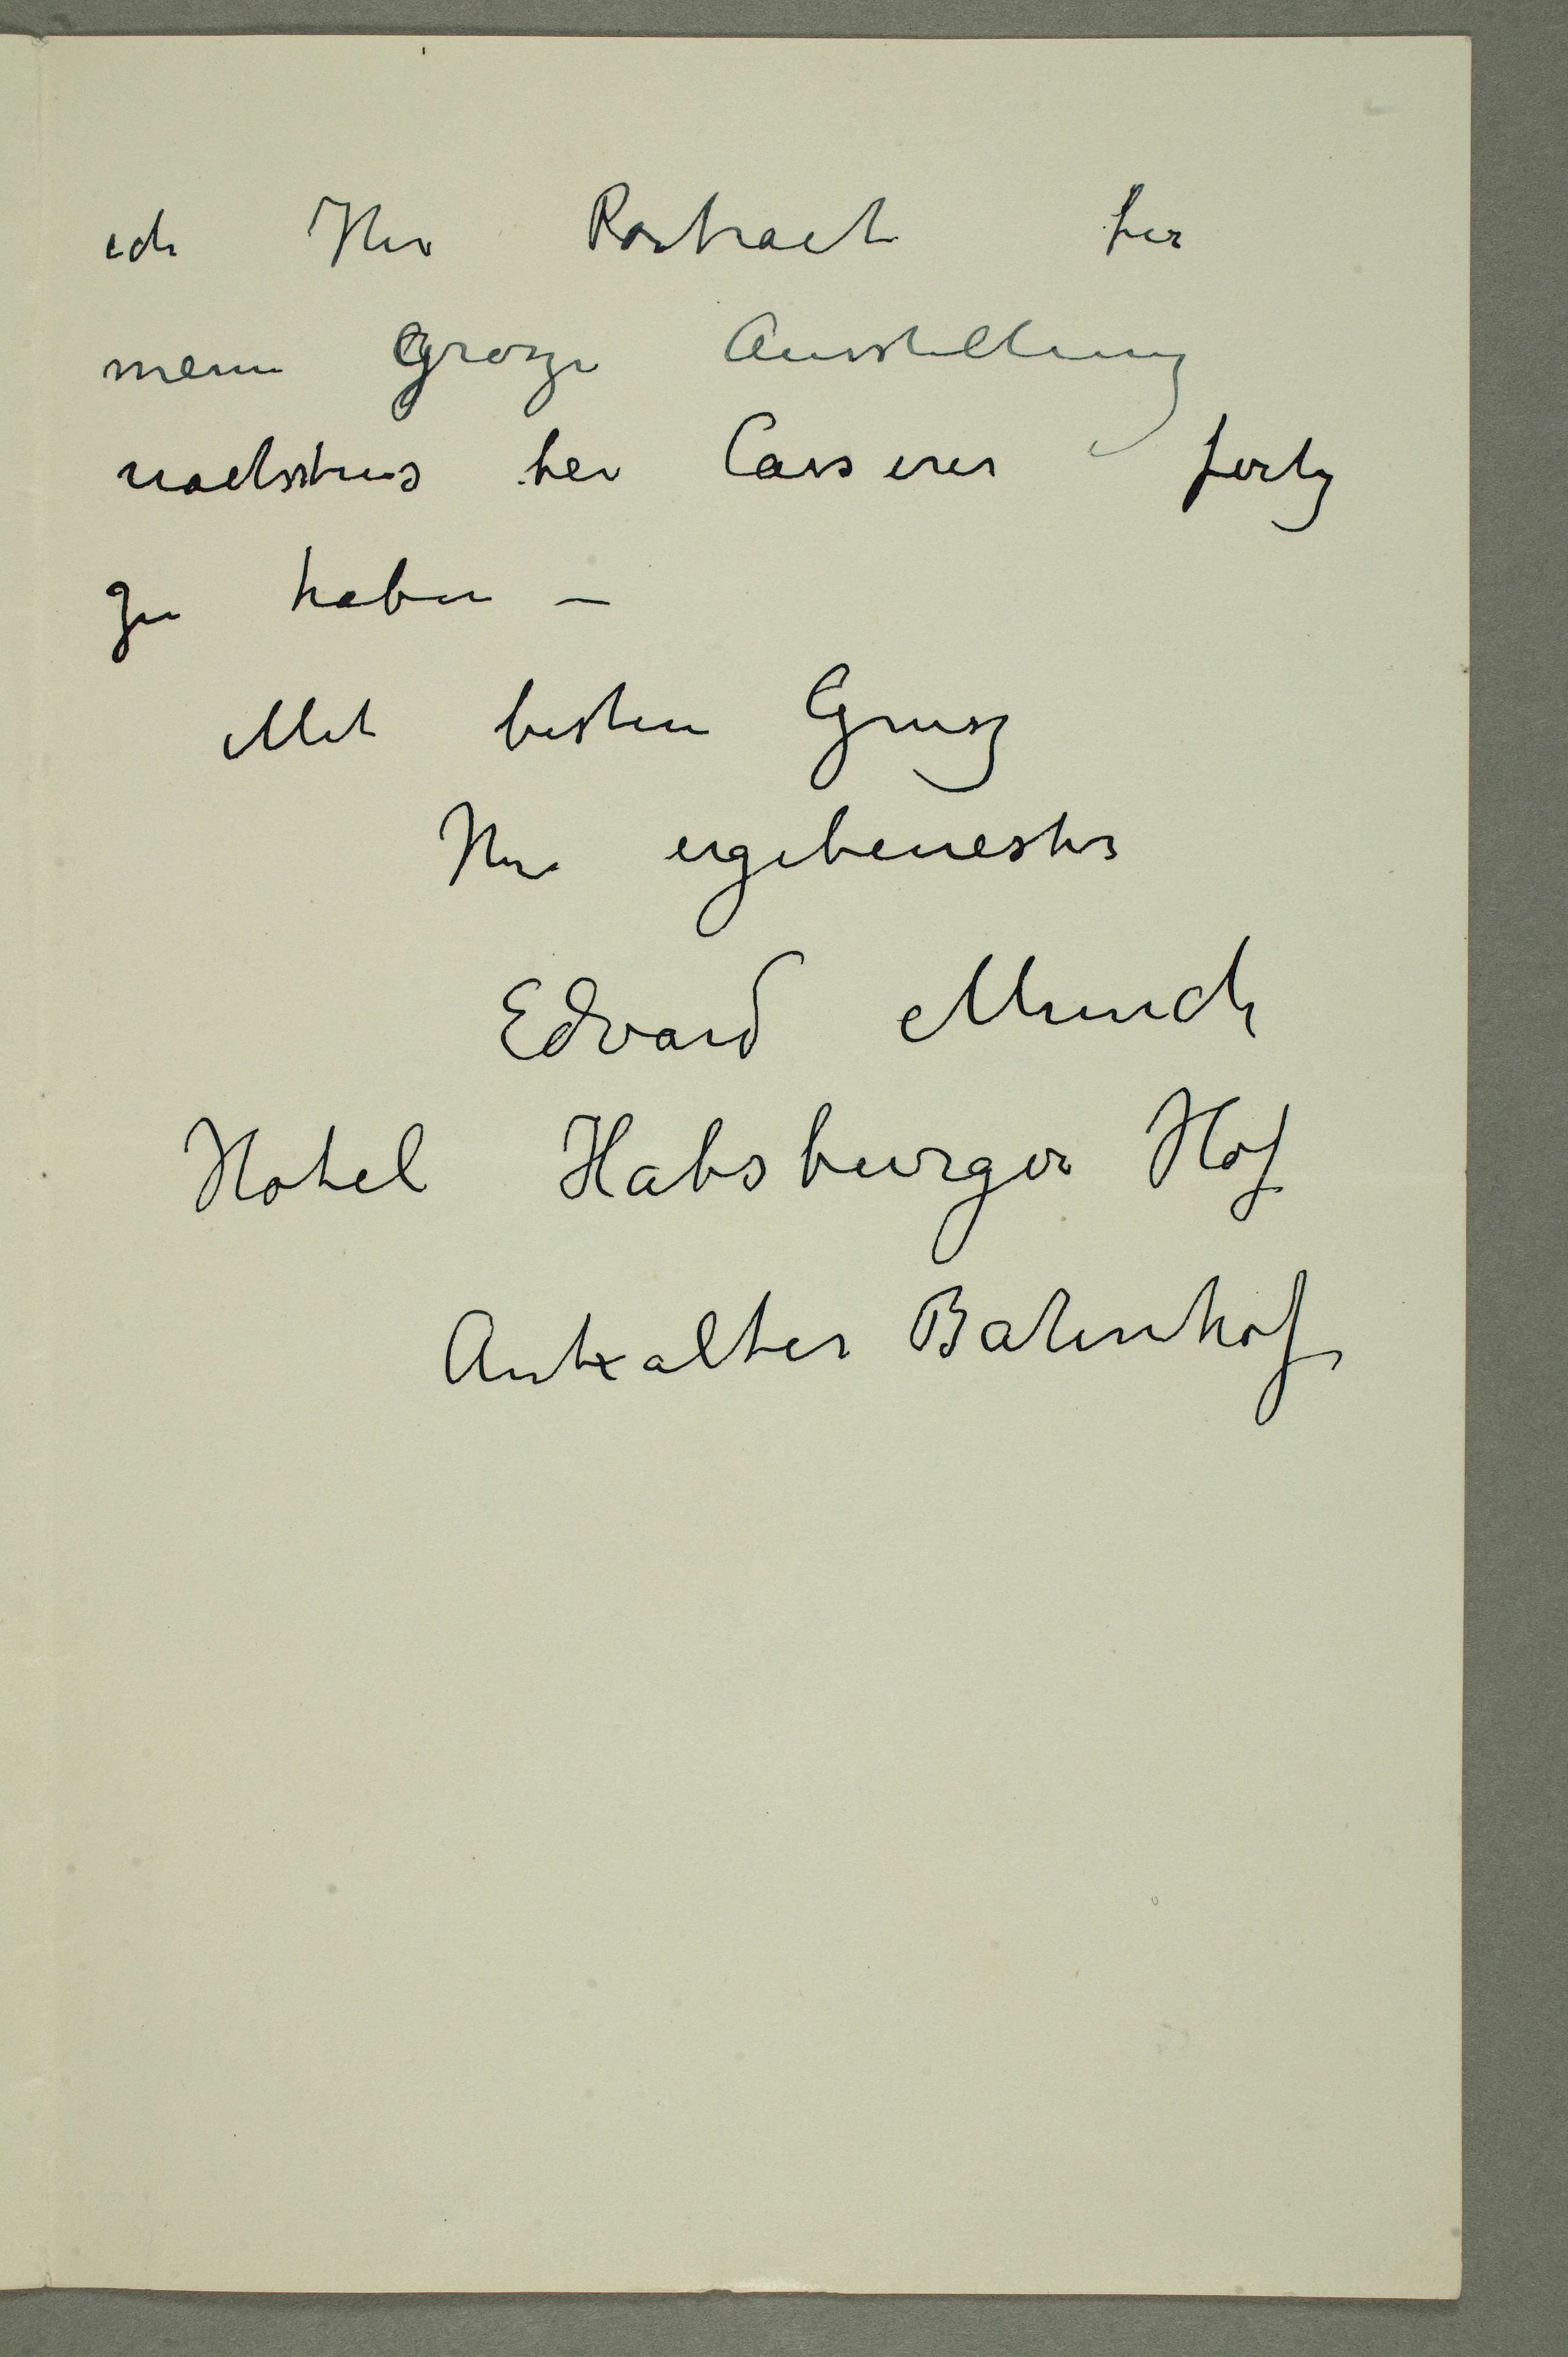 ich Ihr Portraet für
meine grosze Ausstellung
nächstens bei Cassirer fertig
zu haben –
Mit bestem Grusz
Ihr ergebenester
Edvard Munch
Hotel Habsburger Hof
Antxalter Bahnhof